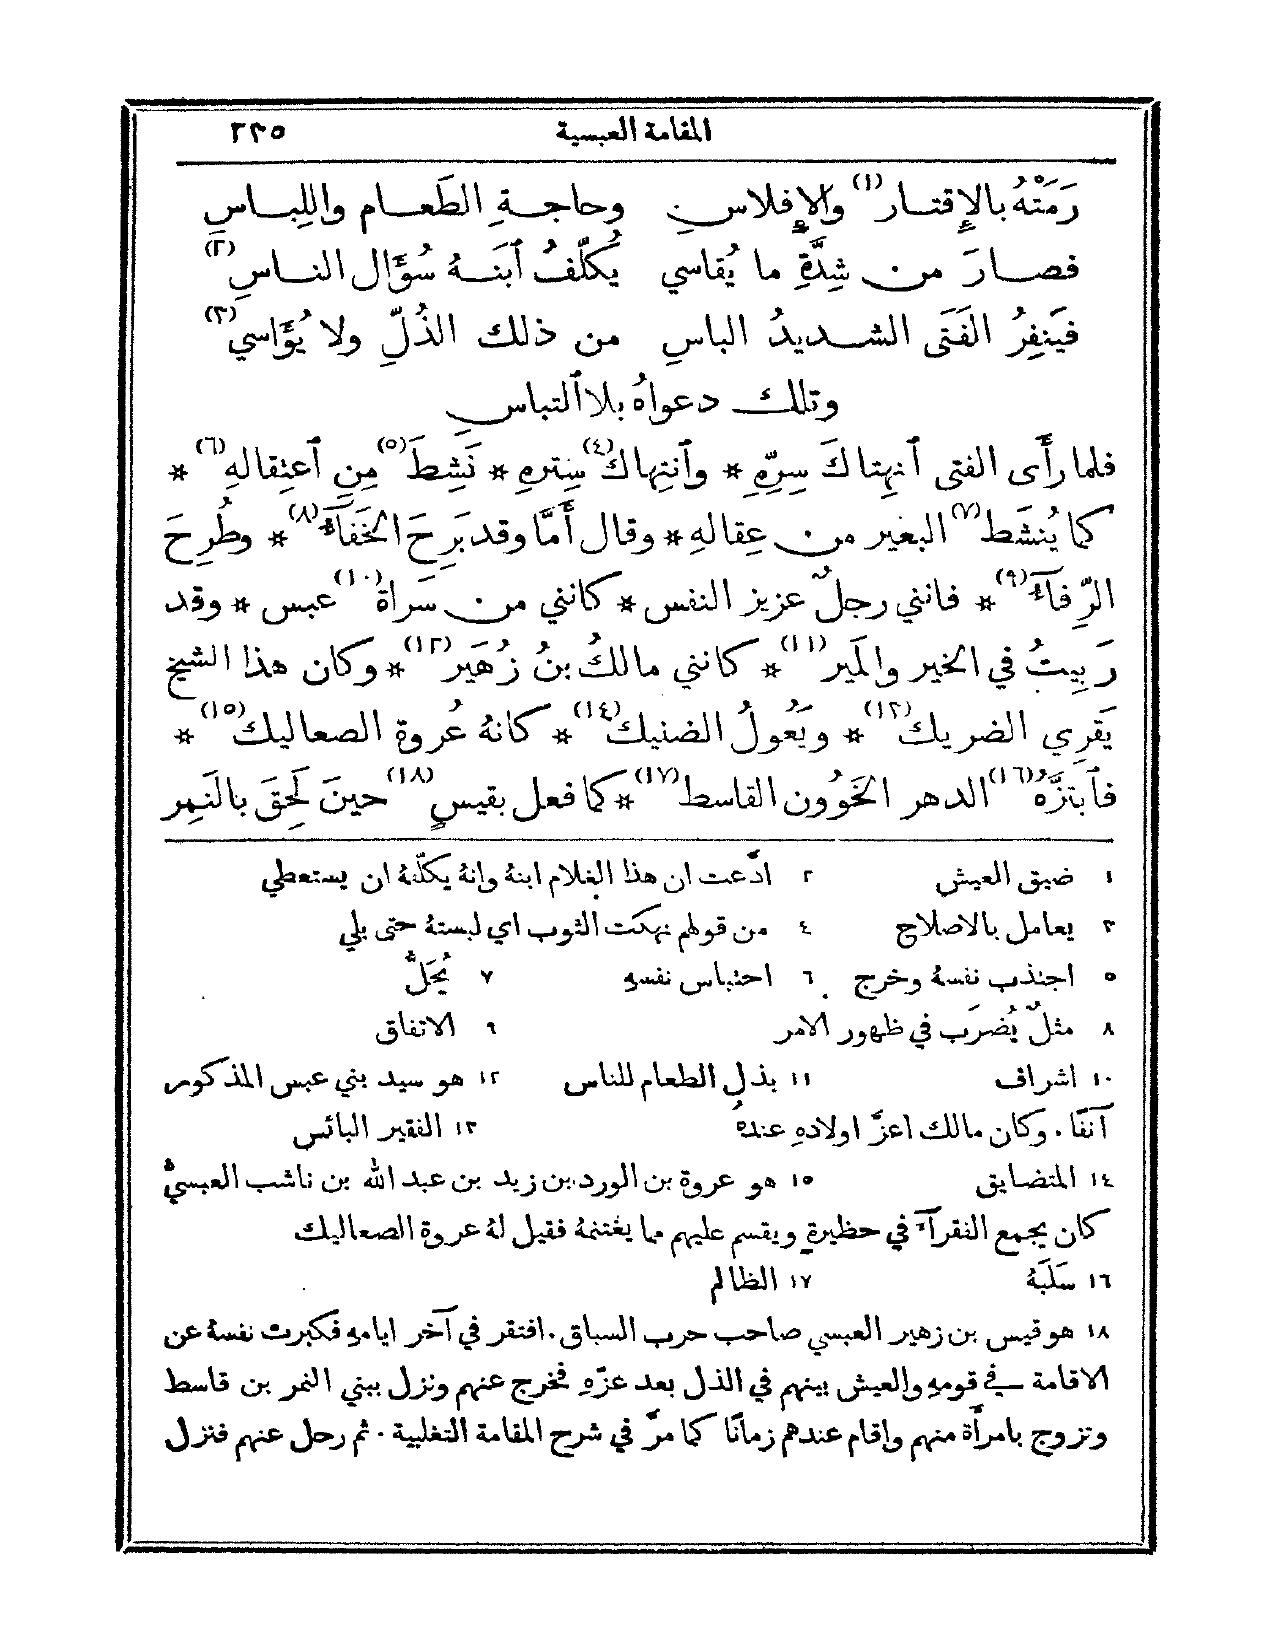 المقامة العبسية ٣٣٥
رَمَتْهُ بالإِقتـار(١) والإِفلاسِ وحاجـةِ الطَعـام واللِبـاسِ
فصـارَ من شِدَّةِ ما يُقاسي يُكلّفُ ٱبنَـهُ سُؤَال النـاسِ(٢)
فيَنفِرُ الفَتَى الشـديدُ الباسِ من ذلك الذُلِّ ولا يُؤَاسي(٣)
وتلك دعواهُ بلا ٱلتباسِ
فلما رأَى الفتى ٱنهِتاكَ سِرِّهِ * وٱنتِهاكَ(٤) سِترهِ * نَشِطَ(٥) مِن ٱعتِقالهِ(٦) *
كما يُنشَط(٧) البعير من عِقالهِ * وقال أَمَّا وقد بَرِحَ الخَفَآءُ(٨) * وطُرِحَ
الرِّفآءُ(٩) * فانني رجلٌ عزيز النفس * كانني من سَراة(١٠) عبس * وقد
رَبِيتُ في الخير والمَير(١١) * كانني مالكُ بنُ زُهَير(١٢) * وكان هذا الشيخ
يَقرِي الضريك(١٣) * ويَعُولُ الضنيك(١٤) * كانهُ عُروة الصعاليك(١٥) *
فٱبتَزَّهُ(١٦) الدهر الخَوُون القاسط(١٧) * كما فعل بقيسٍ(١٨) حينَ لَحِقَ بالنَمِر
١ ضيق العيش ٢ ادَّعت ان هذا الغلام ابنهُ وانهُ يكلّفهُ ان يستعطي
٣ يعامل بالاصلاح ٤ من قولهم نهكت الثوب اي لبستهُ حتى بلي
٥ اجتذب نفسهُ وخرج ٦ احتباس نفسهِ ٧ يُحَلُّ
٨ مثلٌ يُضرَب في ظهور الامر ٩ الاتفاق
١٠ اشراف ١١ بذل الطعام للناس ١٢ هو سيد بني عبس المذكور
آنفًا. وكان مالك اعزَّ اولادهِ عندهُ ١٣ الفقير البائس
١٤ المتضايق ١٥ هو عروة بن الورد بن زيد بن عبد الله بن ناشب العبسيُّ
كان يجمع الفقرآءَ في حظيرةٍ ويقسم عليهم ما يغتنمهُ فقيل لهُ عروة الصعاليك
١٦ سَلَبَهُ ١٧ الظالم
١٨ هو قيس بن زهير العبسي صاحب حرب السباق. افتقر في آخر ايامهِ فكبرت نفسهُ عن
الاقامة في قومهِ والعيش بينهم في الذل بعد عزّهِ فخرج عنهم ونزل ببني النمر بن قاسط
وتزوج بامرأَة منهم واقام عندهم زمانًا كما مرَّ في شرح المقامة التغلبية. ثم رحل عنهم فنزل